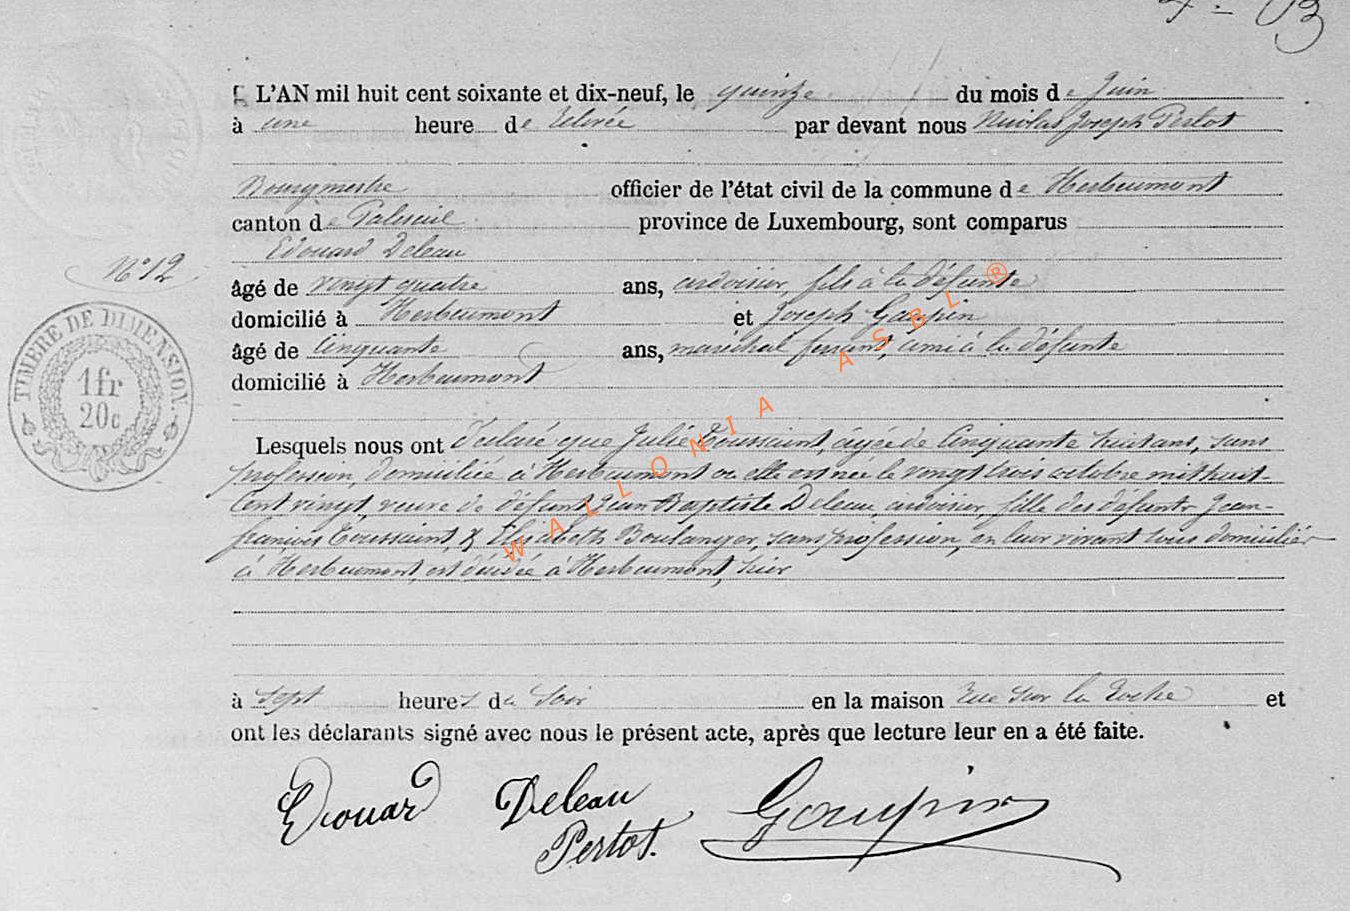 L'AN mil huit cent soixante et dix-neuf, le quinze du mois de Juin
à une heure de relevée par devant nous Nicolas Joseph Pertot
Bourgmestre officier de l'état civil de la commune de Herbeumont
canton de Paliseul province de Luxembourg, sont comparus
Edouard Deleau
N° 12
âgé de vingt quatre ans, ardoisier, fils à la défunte
domicilié à Herbeumont et Joseph Goupin
âgé de Cinquante ans, maréchal ferrant, ami à la défunte
domicilié à Herbeumont
TIMBRE DE DIMENSION.
1fr
20c
Lesquels nous ont déclaré que Julie Toussaint, âgée de Cinquante huit ans, sans
profession, domiciliée à Herbeumont où elle est née le vingt trois octobre mil huit-
Cent vingt, veuve de défunt Jean Baptiste Deleau, ardoisier, fille des défunts Jean-
françois Toussaint, & Elisabeth Boulanger, sans profession, en leur vivant tous domiciliés
à Herbeumont, est décédée à Herbeumont, hier
à sept heures du Soir en la maison rue sur la Roche et
ont les déclarants signé avec nous le présent acte, après que lecture leur en a été faite.
Edouard Deleau Goupin
Pertot.
WALLONIA ASBL ®